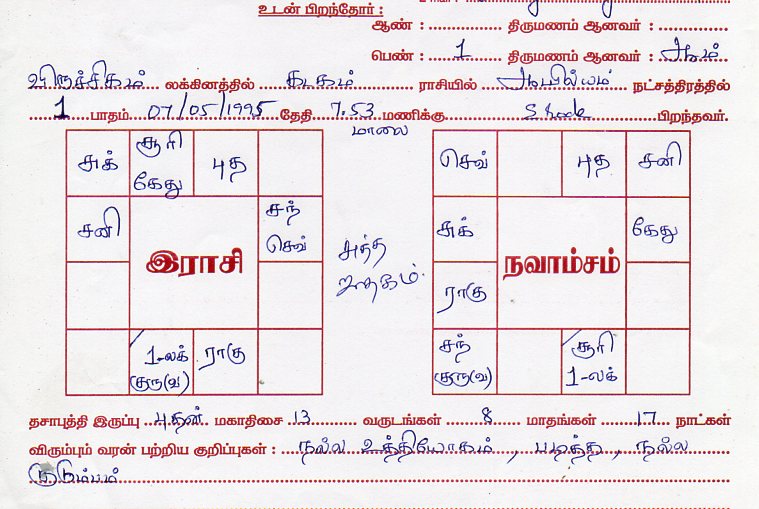 உடன் பிறந்தோர் :
ஆண் : .............. திருமணம் ஆனவர் : ..............
பெண் : ......1...... திருமணம் ஆனவர் : ..ஆம்..
விருச்சிகம் லக்கினத்தில் கடகம் ராசியில் ஆயில்யம் நட்சத்திரத்தில்
1 பாதம் 07/05/1995 தேதி 7.53 மணிக்கு பிறந்தவர்.
மாலை
சுக் சூரி கேது புத
சனி சந் செவ்
இராசி
1-லக் குரு(வ) ராகு
சுத்த ஜாதகம்.
செவ் புத சனி
சுக் கேது
நவாம்சம்
ராகு
சந் குரு(வ) சூரி 1-லக்
தசாபுத்தி இருப்பு ..புதன்.. மகாதிசை ..13.. வருடங்கள் ..8.. மாதங்கள் ..17.. நாட்கள்
விரும்பும் வரன் பற்றிய குறிப்புகள் : நல்ல உத்தியோகம், படித்த, நல்ல
குடும்பம்